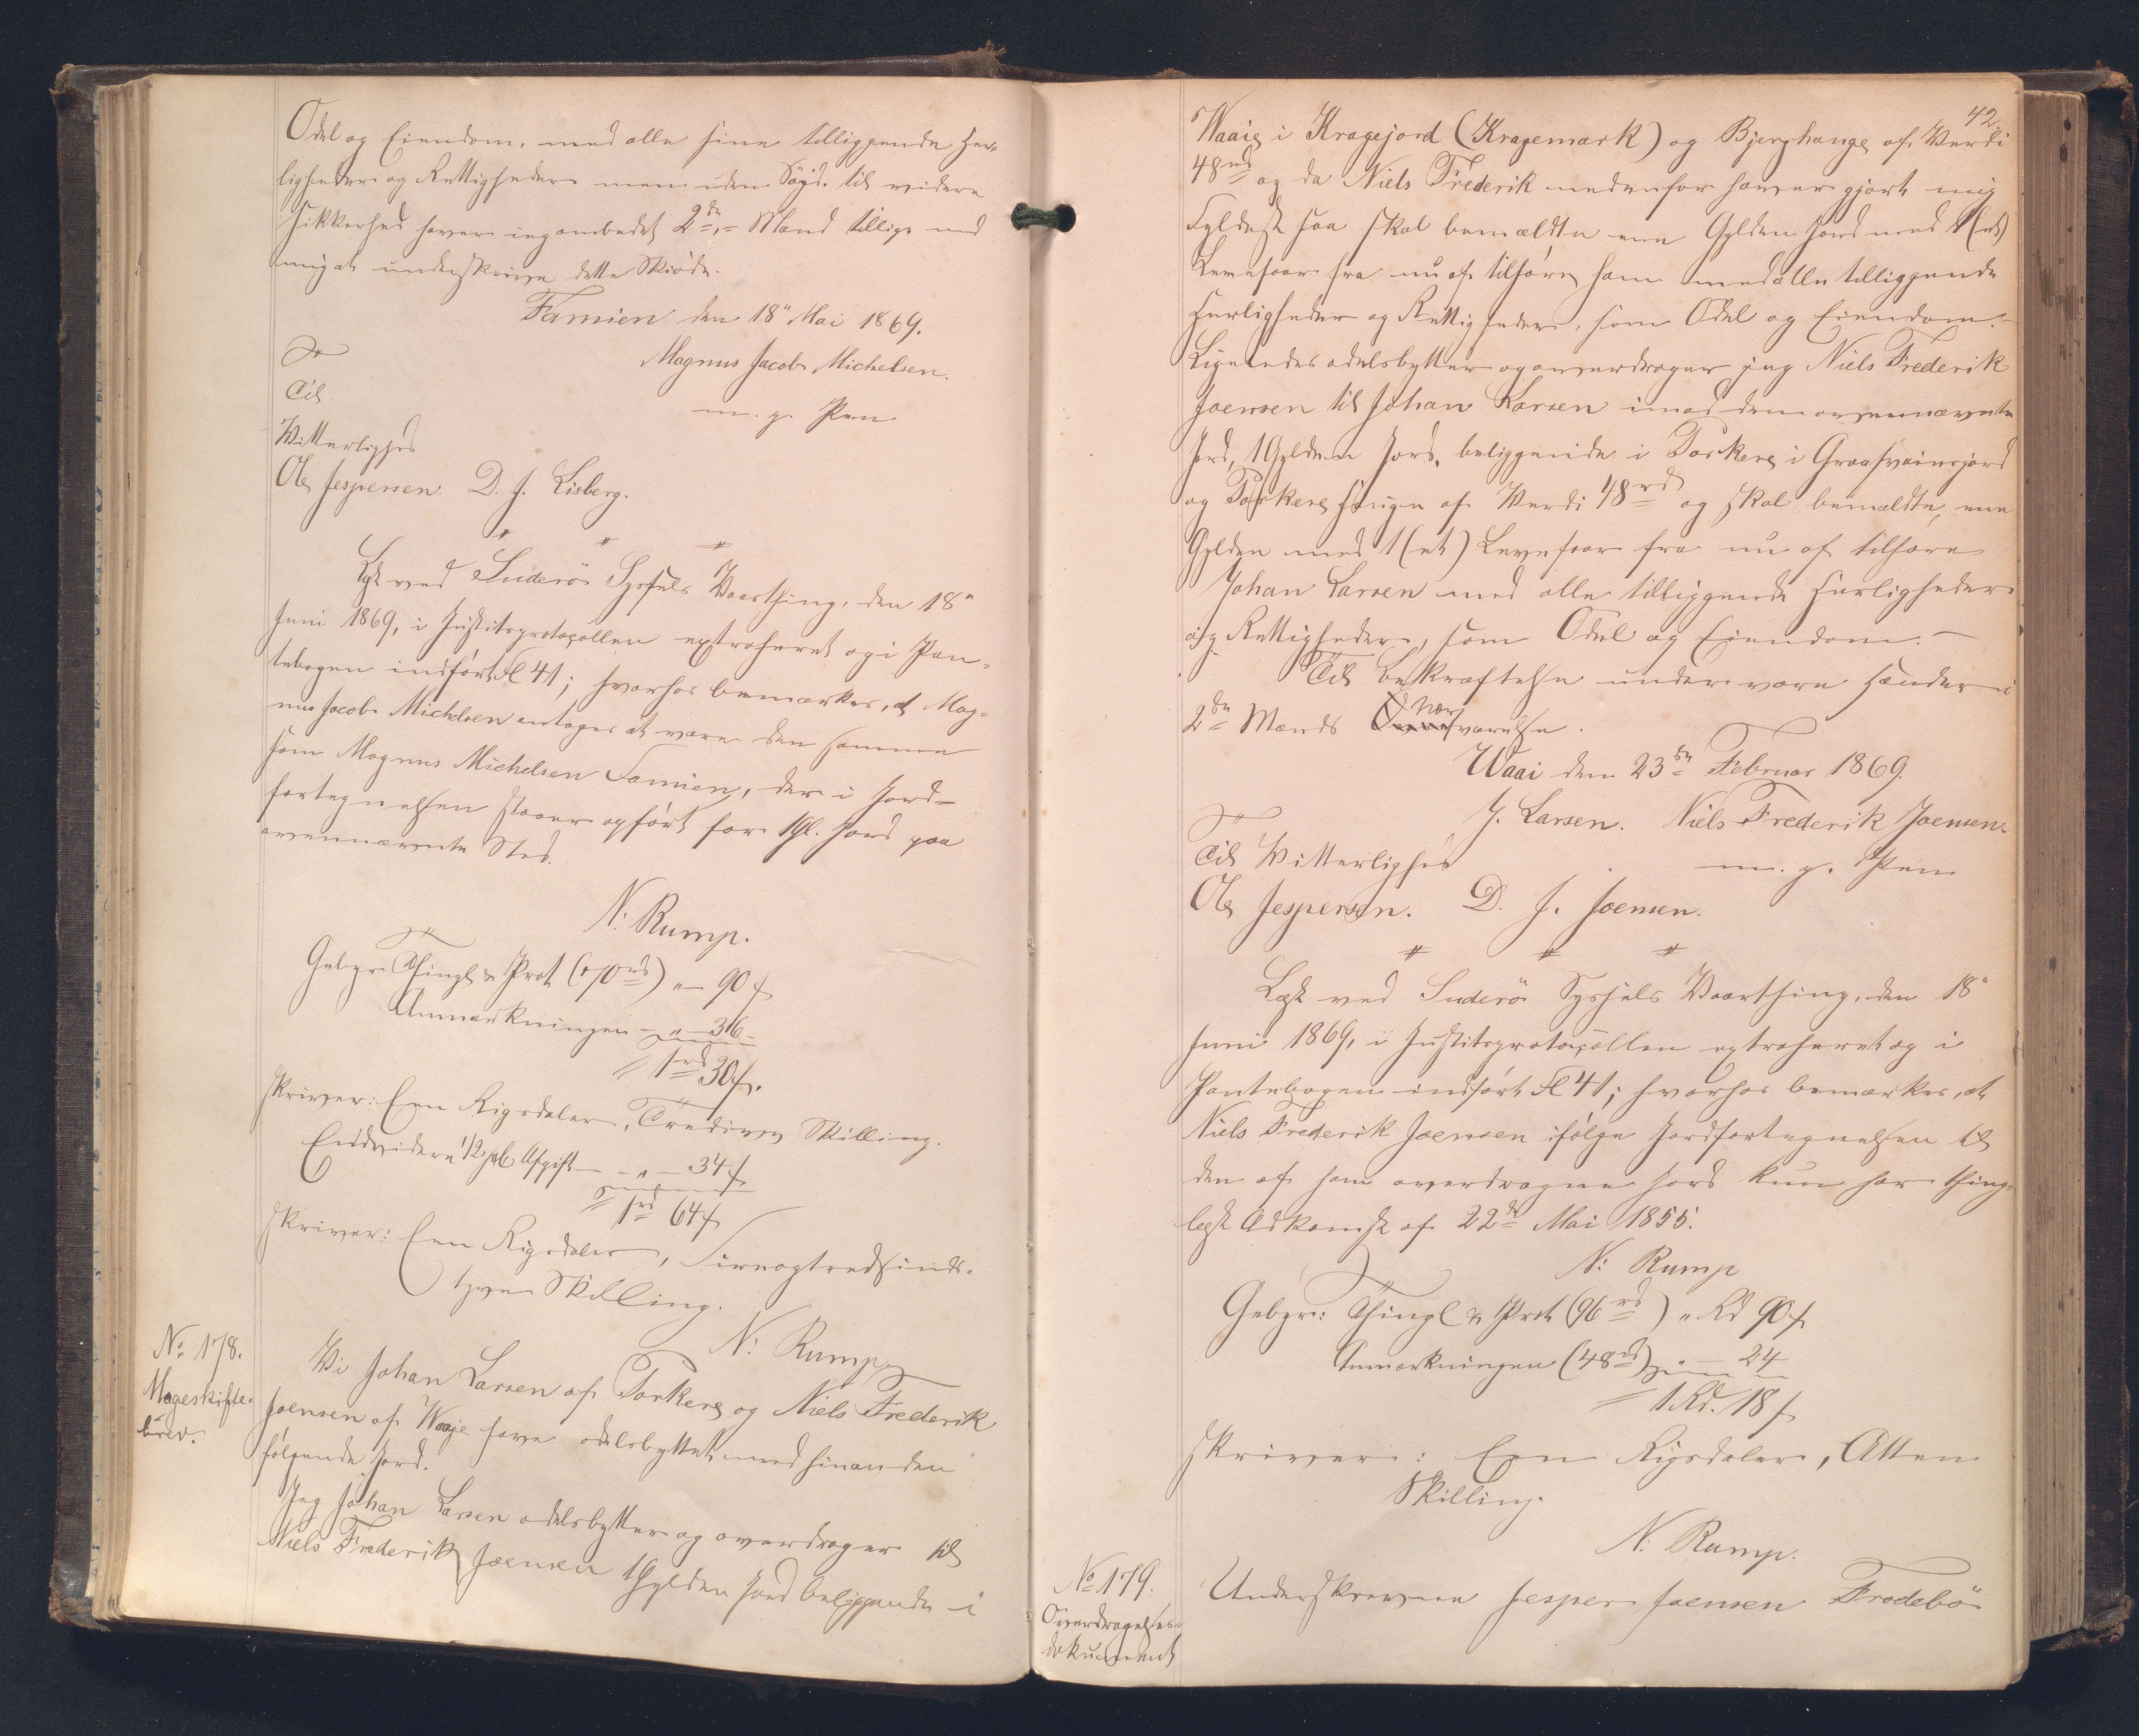 Odel og Eiendom, med alle sine tilliggende Her-
ligheder og Rettigheder men uden Søgd. til videre
Sikkerhed haver jeg ombedet 2de Mænd tillige med
mig at underskrive dette Skiøde.
Famien den 18" Mai 1869.
Magnus Jacob Michelsen.
m. p. Pen
Til
Witterlighed
Ole Jespersen. D. J. Lisberg.
Læst ved Suderö Syssels Vaarthing, den 18"
Juni 1869, i Justitsprotocollen extraheret og i Pan-
tebogen indført Fol 41; hvorhos bemærkes, at Mag-
nus Jacob Michelsen antages at være den samme
som Magnus Michelsen Famien, der i Jord-
fortegnelsen staaer opført for 1 Gl. Jord paa
ovennævnte Sted.
N: Rump.
Gebyr: Thingl & Prot (70rd) " - 90 s
Anmærkningen - " - 36 -
= 1rd 30 s.
skriver: Een Rigsdaler, Tredive Skilling.
Endvidere 1/2 pCt Afgift - " - 34 s
= 1rd 64 s
skriver: Een Rigsdaler, Fireogtredsinds-
tyve Skilling.
N: Rump
No 178.
Mageskifte-
brev.
Vi Johan Larsen af Porkere og Niels Frederik
Joensen af Waaje have odelsbyttet med hinanden
følgende Jord.
Jeg Johan Larsen odelsbytter og overdrager til
Niels Frederik Joensen 1 Gylden Jord beliggende i
42.
Waaig i Kragejord (Kragemark) og Bjerghauge af Verdi
48rd og da Niels Frederik nedenfor haver gjort mig
Fyldest saa skal bemældte een Gylden Jord med 1 (et)
Levefoor fra nu af tilhøre ham med alle tilliggende
Herligheder og Rettigheder, som Odel og Eiendom. -
Ligeledes odelsbytter og overdrager jeg Niels Frederik
Joensen til Johan Larsen imod den ovennævnte
Jord, 1 Gylden Jord, beliggende i Porkere i Graasvainsjord
og Porkere Hauge af Verdi 48rd og skal bemældte, een
Gylden med 1 (et) Levefoor fra nu af tilhøre
Johan Larsen med alle tilliggende Herligheder
og Rettigheder, som Odel og Eiendom. -
Til Bekræftelse under vore Hænder i
2de Mænds Nærværelse.
Waai den 23de Februar 1869.
J. Larsen. Niels Frederik Joensen.
Til Witterlighed
m. p. Pen
Ole Jespersen. D. J. Joensen.
Læst ved Suderö Syssels Vaarthing, den 18"
Juni 1869, i Justitsprotocollen extraheret og i
Pantebogen indført Fol 41; hvorhos bemærkes, at
Niels Frederik Joensen ifølge Jordfortegnelsen til
den af ham overdragne Jord kun har thing-
læst Adkomst af 22de Mai 1855.
N: Rump
Gebyr: Thingl & Prot (96rd) " Rd 90 s
Anmærkningen (48rd) " - 24
= 1 Rd. 18 s
skriver: Een Rigsdaler, Atten
Skilling.
N. Rump.
No 179.
Overdragelses-
dokument
Underskrevne Jesper Joensen Frodebö